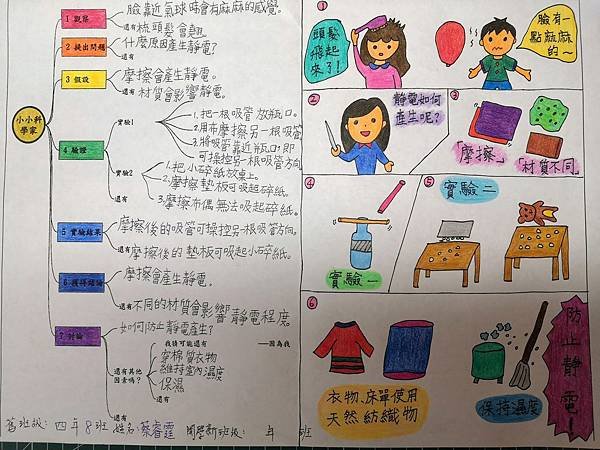 小小科學家
1 觀察
臉靠近氣球時會有麻麻的感覺。
還有 梳頭髮會翹
2 提出問題
什麼原因產生靜電?
還有
3 假設
摩擦會產生靜電。
還有 材質會影響靜電。
4 驗證
實驗1
1.把一根吸管放瓶口。
2.用布摩擦另一根吸管
3.將吸管靠近瓶口,即
可操控另一根吸管方向
實驗2
1.把小碎紙放桌上。
2.摩擦墊板可吸起碎紙。
3.摩擦布偶無法吸起碎紙。
還有
5 實驗結果
摩擦後的吸管可操控另一根吸管方向。
還有 摩擦後的墊板可吸起小碎紙。
6 獲得結論
摩擦會產生靜電。
還有 不同的材質會影響靜電程度。
7 討論
如何防止靜電產生?
還有其他因素嗎?
我猜可能還有
——因為我
穿棉質衣物
維持室內濕度
保濕
還有
還有
舊班級: 四年8班 姓名:蔡睿霆 開學新班級: 年 班
①
頭髮飛起來了!
臉有一點麻麻的~
②
靜電如何產生呢?
③
「摩擦」
「材質不同」
④
實驗一
⑤
實驗二
⑥
衣物、床單使用
天然紡織物
保持濕度
防止靜電!